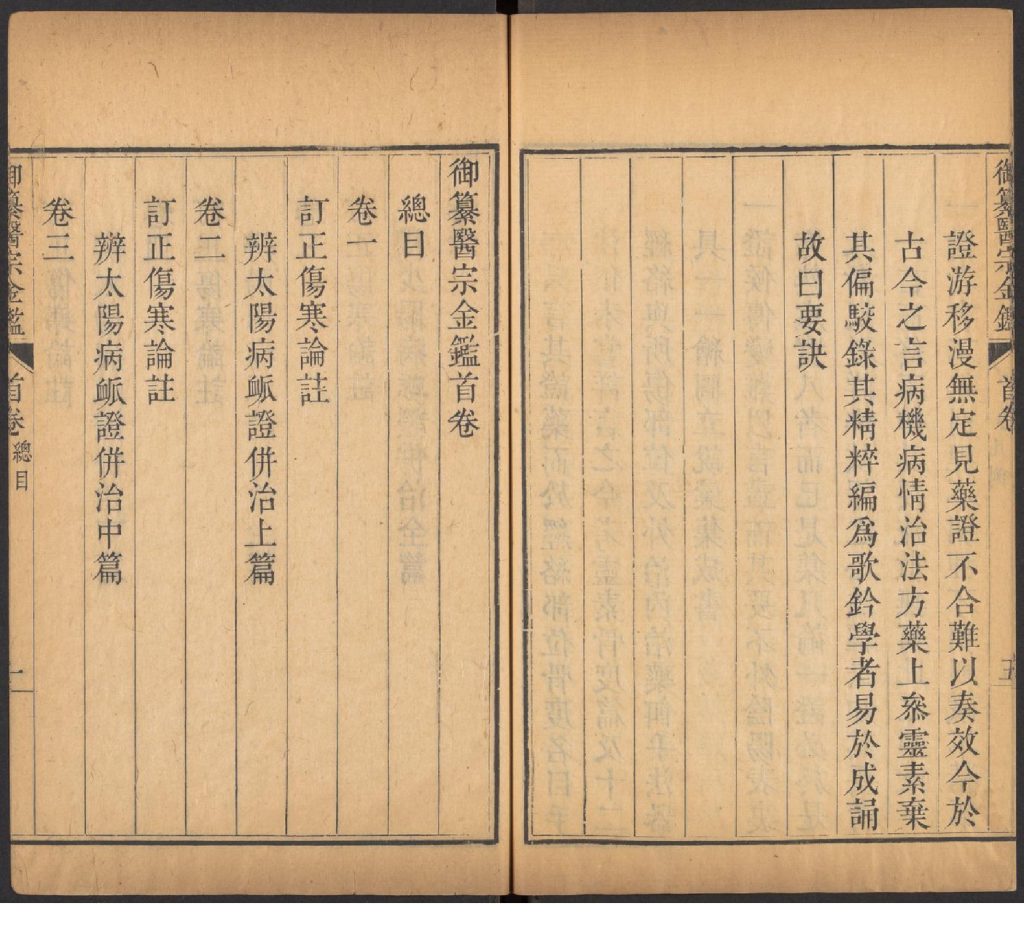 御纂醫宗金鑑
首卷
五
證游移漫無定見藥證不合難以奏效今於
古今之言病機病情治法方藥上叅靈素棄
其偏駁錄其精粹編爲歌鈐學者易於成誦
故曰要訣
御纂醫宗金鑑首卷
總目
卷一
訂正傷寒論註
辨太陽病脈證併治上篇
卷二
訂正傷寒論註
辨太陽病脈證併治中篇
卷三
御纂醫宗金鑑
首卷
總目
一